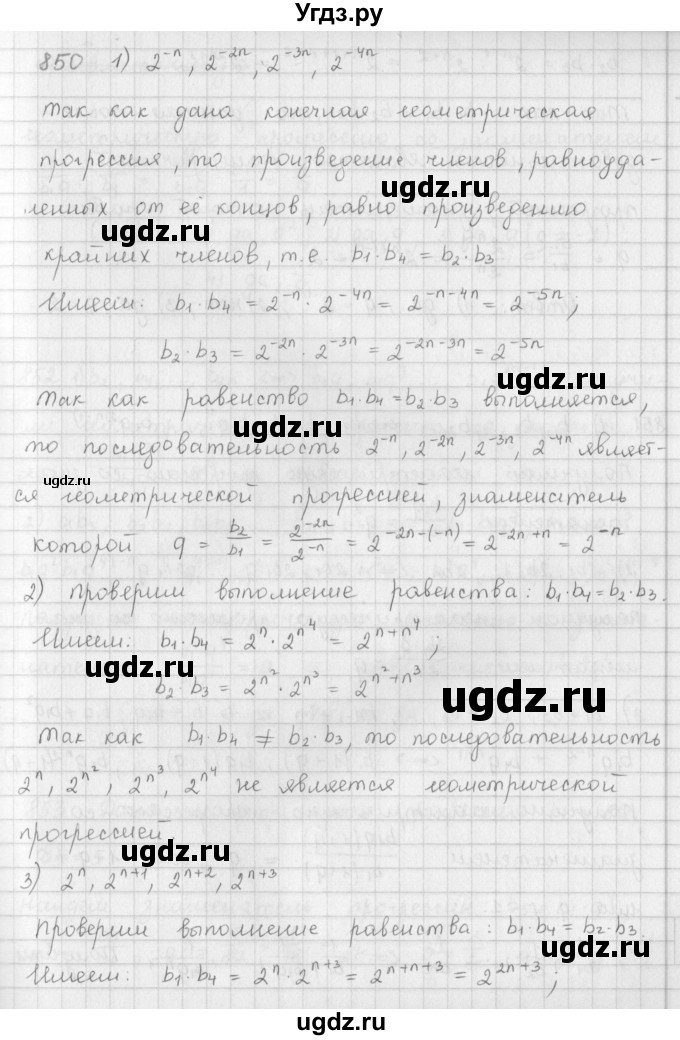 Угдз.ру
850 1) 2^{-n}, 2^{-2n}, 2^{-3n}, 2^{-4n}
Так как дана конечная геометрическая
прогрессия, то произведение членов, равноуда-
ugdz.ru
ленных от её концов, равно произведению
ugdz.ru
крайних членов, т.е. b₁·b₄ = b₂·b₃
Имеем: b₁·b₄ = 2^{-n}·2^{-4n} = 2^{-n-4n} = 2^{-5n};
b₂·b₃ = 2^{-2n}·2^{-3n} = 2^{-2n-3n} = 2^{-5n}
Так как равенство b₁·b₄=b₂·b₃ выполняется,
ugdz.ru
то последовательность 2^{-n}, 2^{-2n}, 2^{-3n}, 2^{-4n} являет-
ugdz.ru
ся геометрической прогрессией, знаменатель
которой q = b₂/b₁ = 2^{-2n}/2^{-n} = 2^{-2n-(-n)} = 2^{-2n+n} = 2^{-n}
2) Проверим выполнение равенства: b₁·b₄=b₂·b₃.
Имеем: b₁·b₄ = 2^{n}·2^{n^4} = 2^{n+n^4};
ugdz.ru
b₂·b₃ = 2^{n^2}·2^{n^3} = 2^{n^2+n^3}
ugdz.ru
Так как b₁·b₄ ≠ b₂·b₃, то последовательность
2^{n}, 2^{n^2}, 2^{n^3}, 2^{n^4} не является геометрической
прогрессией.
ugdz.ru
3) 2^{n}, 2^{n+1}, 2^{n+2}, 2^{n+3}
Проверим выполнение равенства: b₁·b₄ = b₂·b₃.
ugdz.ru
Имеем: b₁·b₄ = 2^{n}·2^{n+3} = 2^{n+n+3} = 2^{2n+3};
ugdz.ru